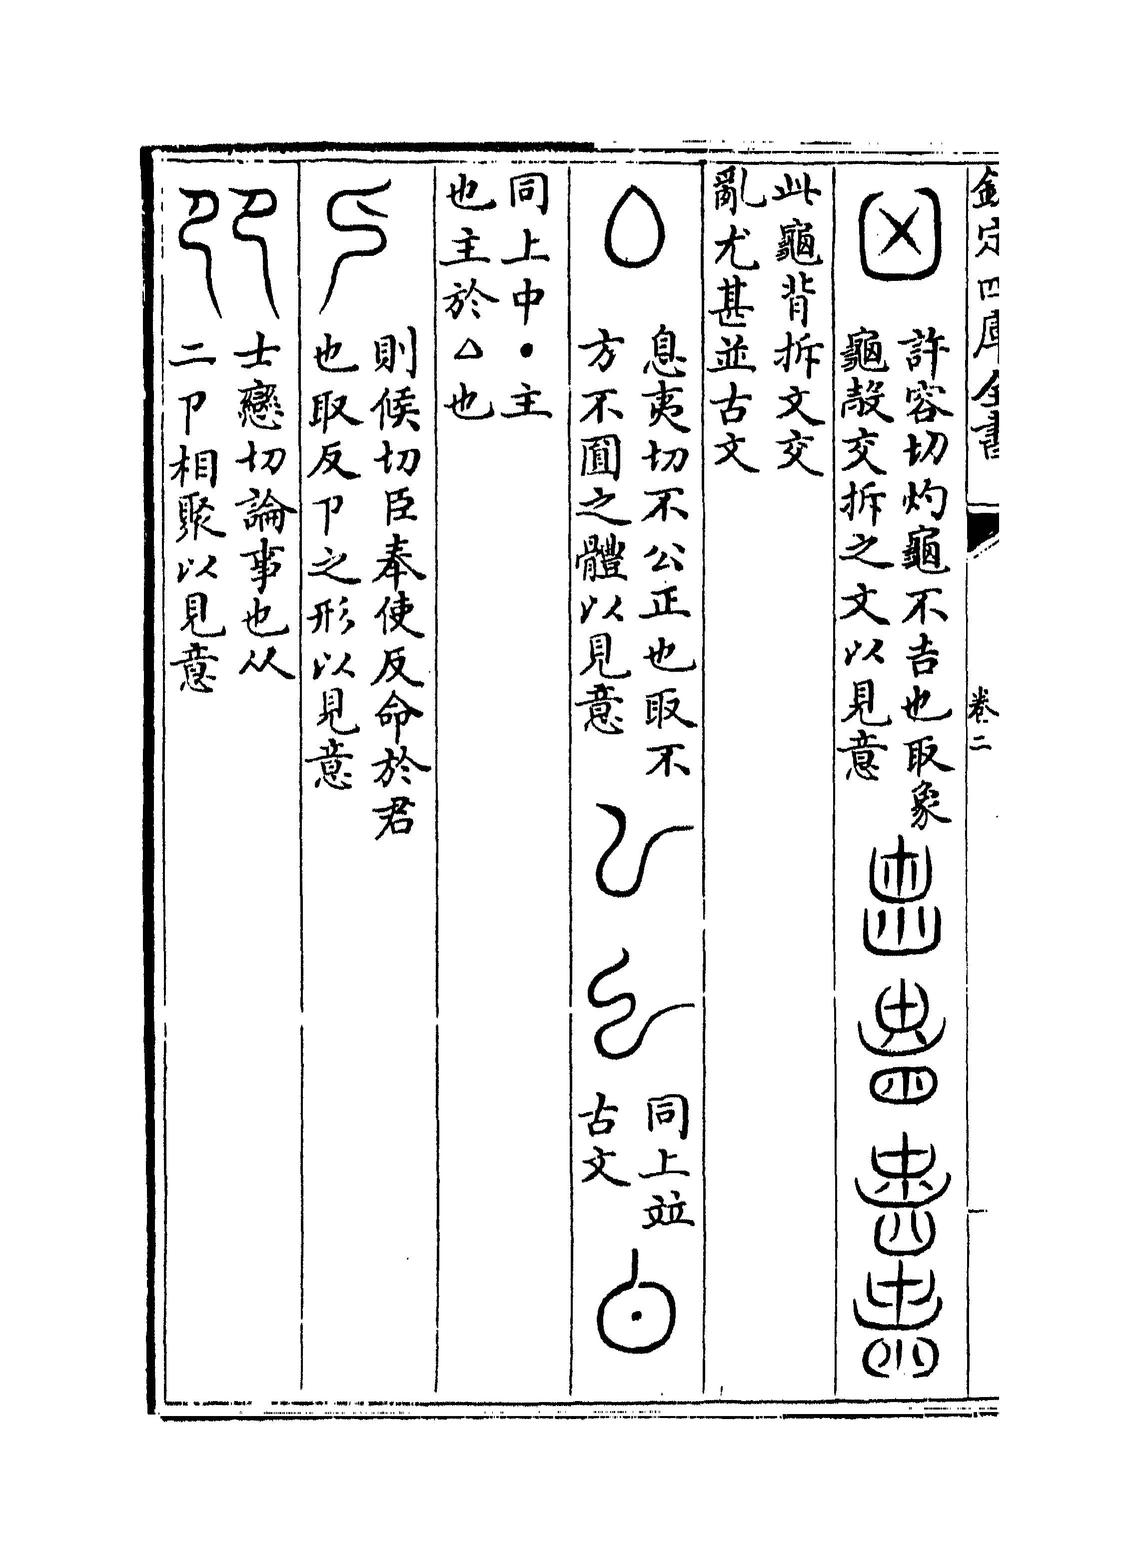 欽定四庫全書
卷二
許容切灼龜不吉也取象
龜殻交拆之文以見意
此龜背拆文交
亂尤甚並古文
息夷切不公正也取不
方不圓之體以見意
同上並
古文
同上中•主
也主於△也
則候切臣奉使反命於君
也取反卩之形以見意
士戀切論事也从
二卩相聚以見意